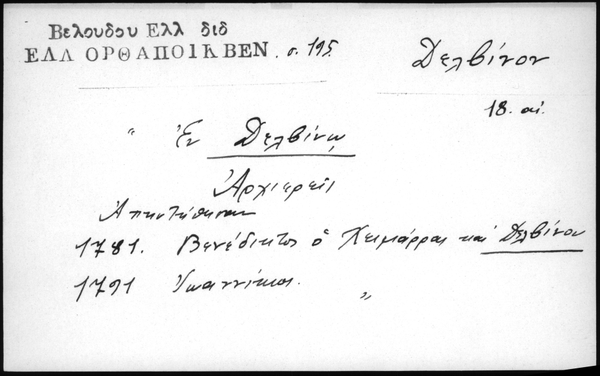 Βελουδου Ελλ διδ
ΕΛΛ ΟΡΘ ΑΠΟΙΚ ΒΕΝ. σ. 195
Δελβίνον
18. αἰ.
" Ἐν Δελβίνῳ
Ἀρχιερεῖς
1781. Βενέδικτος ὁ Χειμάρρας καὶ Δελβίνου
1791 Ἰωαννίκιος. "